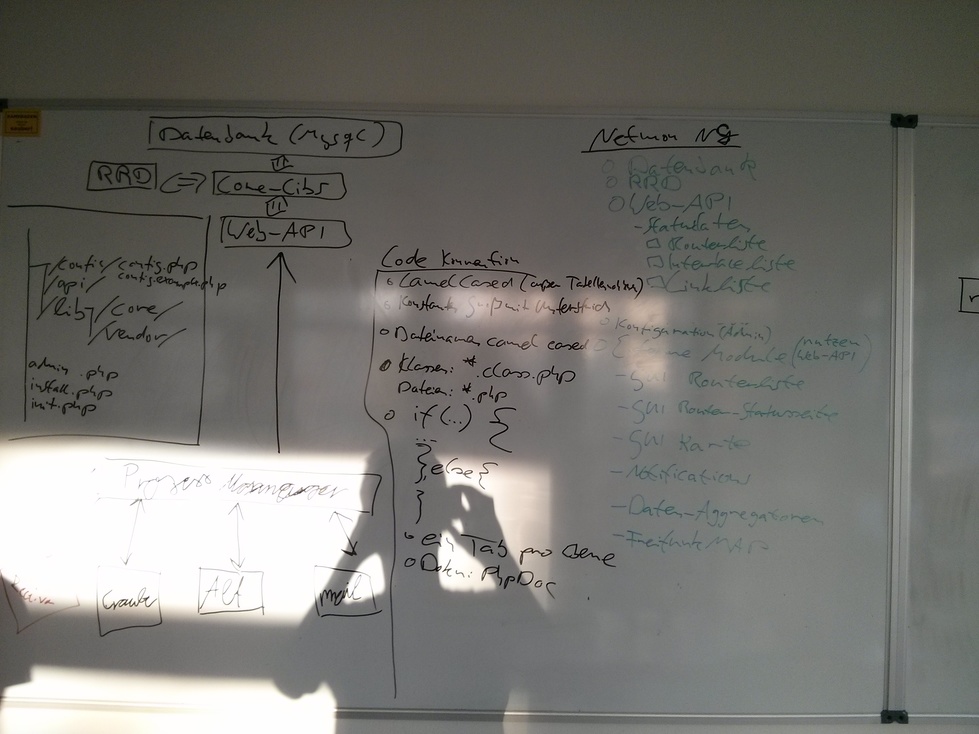 Datenbank (MySQL)
RRD
Core-Libs
Web-API
/config/config.php
config.example.php
/api/
/lib/core/
/vendor/
admin.php
install.php
init.php
Prozess Manager
Crawler
Alf
mail
Code Konvention
Camel Cased (ausser Tabellen
Konstanten Groß mit Unterstrich
Dateinamen camel cased
Klassen: *.class.php
Dateien: *.php
if (...) {
...
} else {
}
ein Tab pro Ebene
Doku: PhpDoc
Netmon NG
Datenbank
RRD
Web-API
- Statusdaten
Routerliste
Interfaceliste
Linkliste
Konfiguration (Admin)
Module (nutzen Web-API)
- GUI Routerliste
- GUI Router-Statusseite
- GUI Karte
- Notifications
- Daten-Aggregationen
- Freifunk MAP